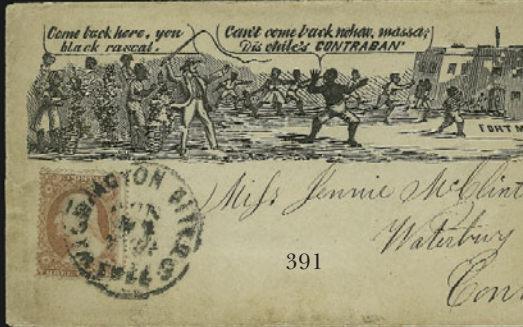 Come back here, you
black rascal.
Can't come back nohow, massa;
Dis chile's CONTRABAN'
FORT M
WASHINGTON CITY
Miss Jennie McClint
Waterbury
Conn
391